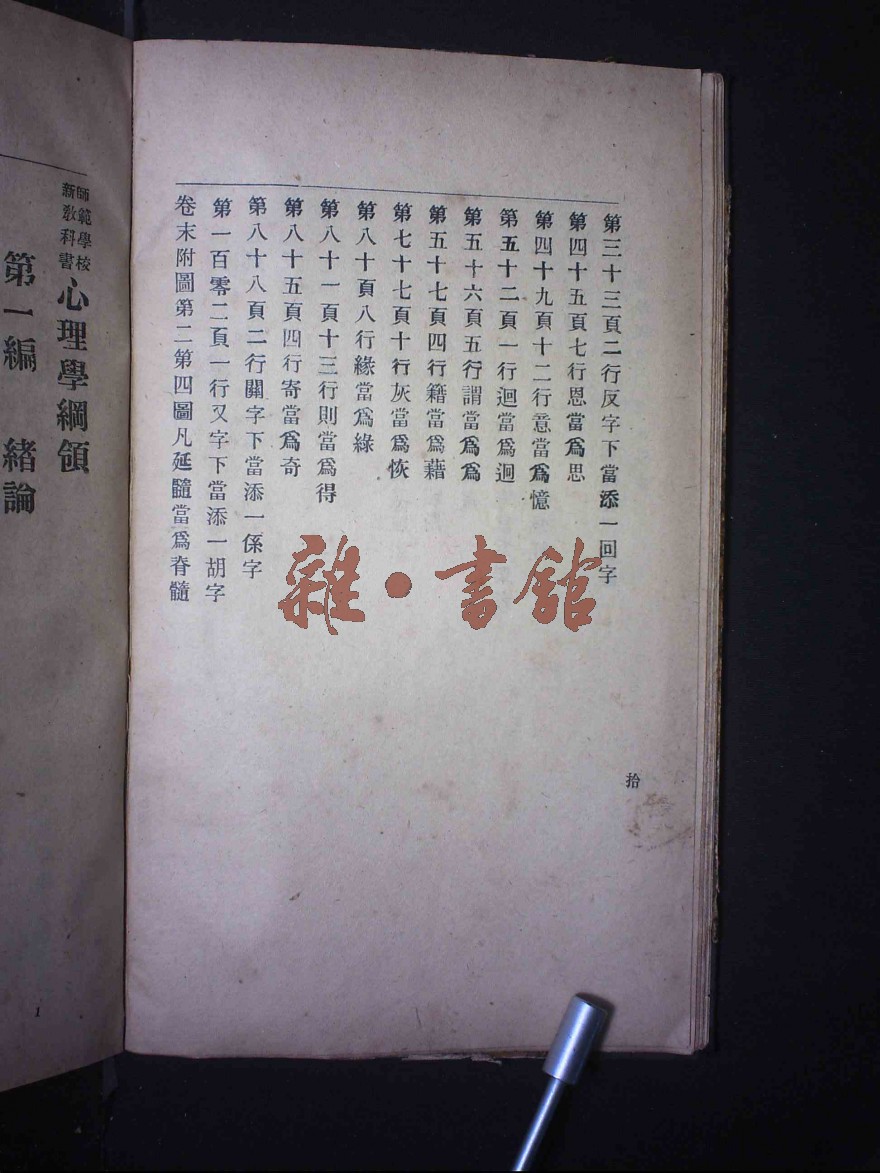 第三十三頁二行反字下當添一回字
第四十五頁七行恩當爲思
第四十九頁十二行意當爲憶
第五十二頁一行迴當爲迥
第五十六頁五行謂當爲爲
第五十七頁四行籍當爲藉
第七十七頁十行灰當爲恢
第八十頁八行緣當爲綠
第八十一頁十三行則當爲得
第八十五頁四行寄當爲奇
第八十八頁二行關字下當添一係字
第一百零二頁一行又字下當添一胡字
卷末附圖第二第四圖凡延髓當爲脊髓
拾
雜·書館
師範學校
新敎科書
心理學綱領
第一編 緒論
1